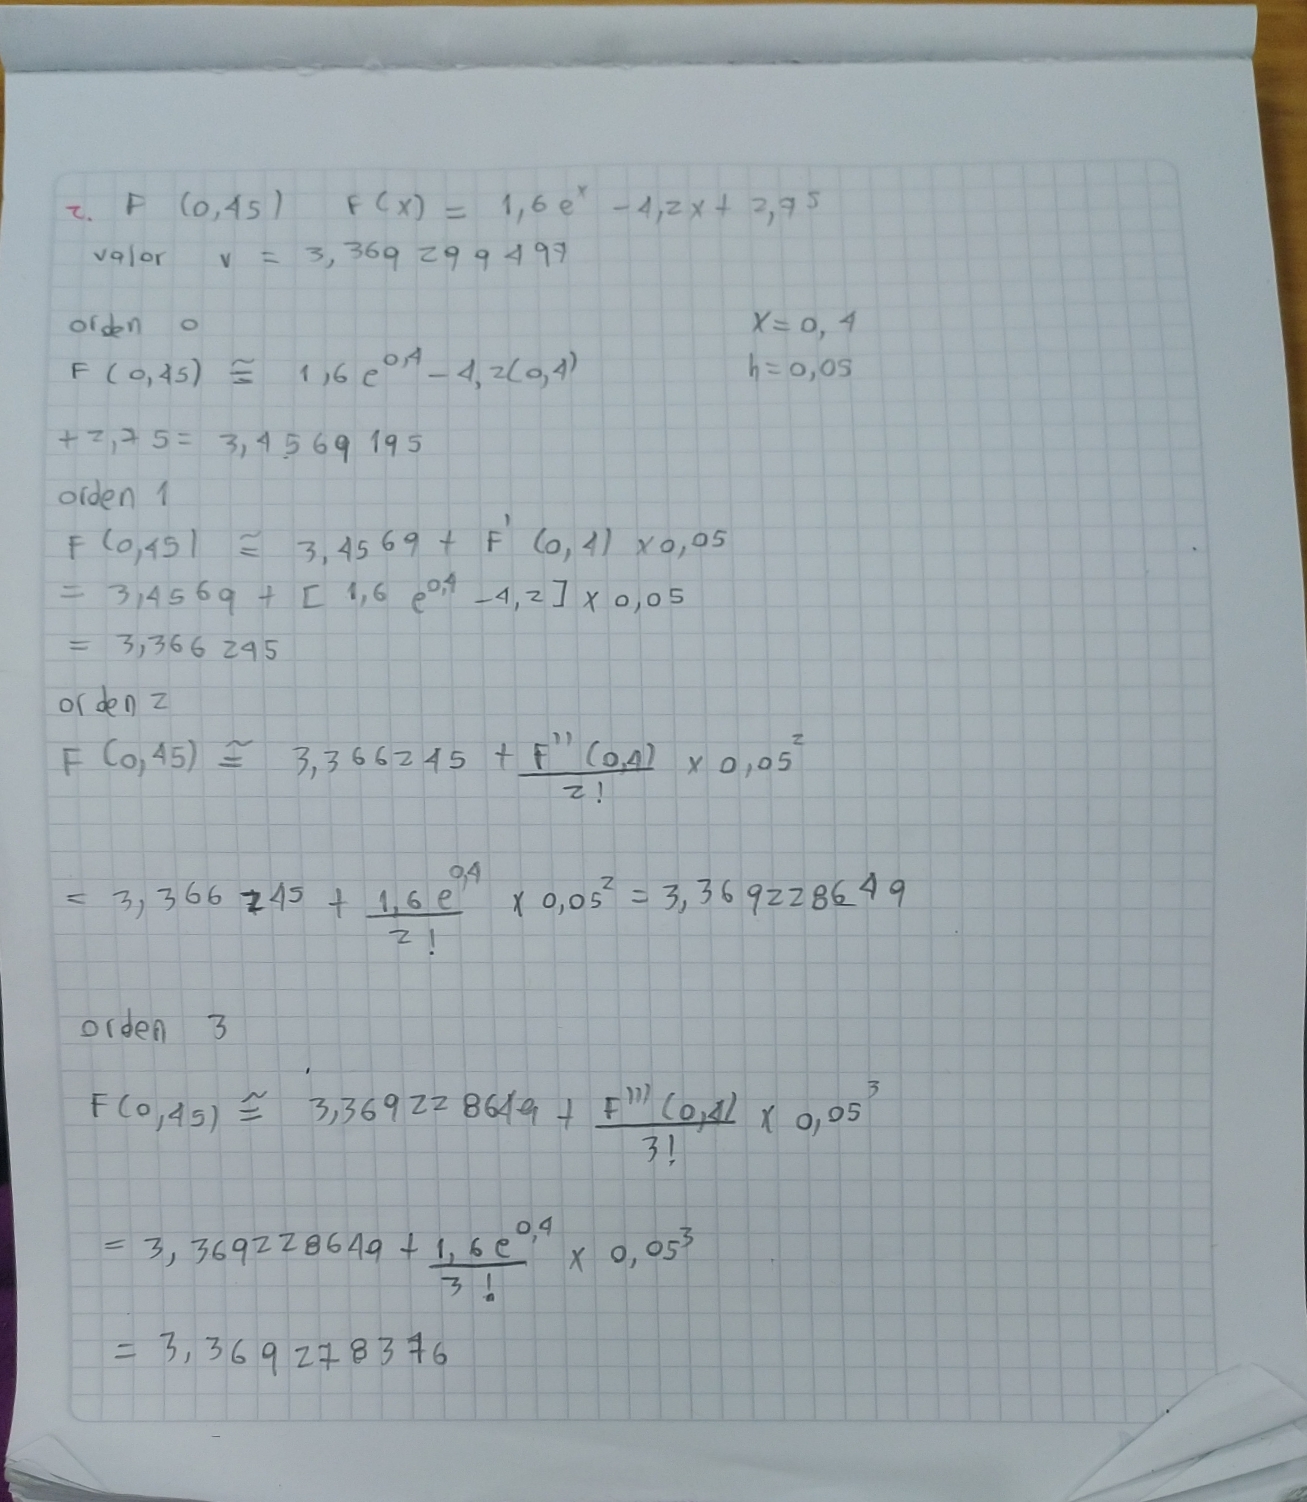 2. F (0,45) F(x) = 1,6e^x - 4,2x + 2,75
valor v = 3,369299497
orden 0
x = 0,4
F (0,45) ≅ 1,6 e^0,4 - 4,2(0,4)
h = 0,05
+2,75 = 3,4569195
orden 1
F (0,45) ≅ 3,4569 + F' (0,4) x 0,05
= 3,4569 + [ 1,6 e^0,4 - 4,2 ] x 0,05
= 3,366245
orden 2
F (0,45) ≅ 3,366245 + F''(0,4)/2! x 0,05^2
= 3,366245 + 1,6 e^0,4/2! x 0,05^2 = 3,369228649
orden 3
F(0,45) ≅ 3,369228649 + F'''(0,4)/3! x 0,05^3
= 3,369228649 + 1,6 e^0,4/3! x 0,05^3
= 3,369278376